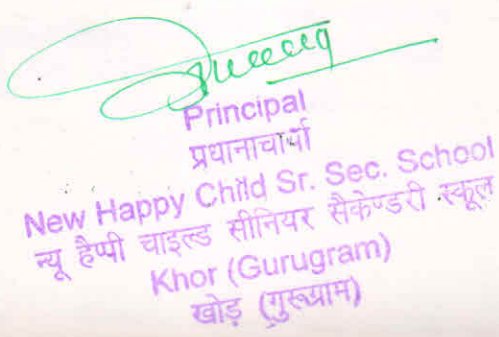 Principal
प्रधानाचार्या
New Happy Child Sr. Sec. School
न्यू हैप्पी चाइल्ड सीनियर सैकेण्डरी स्कूल
Khor (Gurugram)
खोड़ (गुरूग्राम)